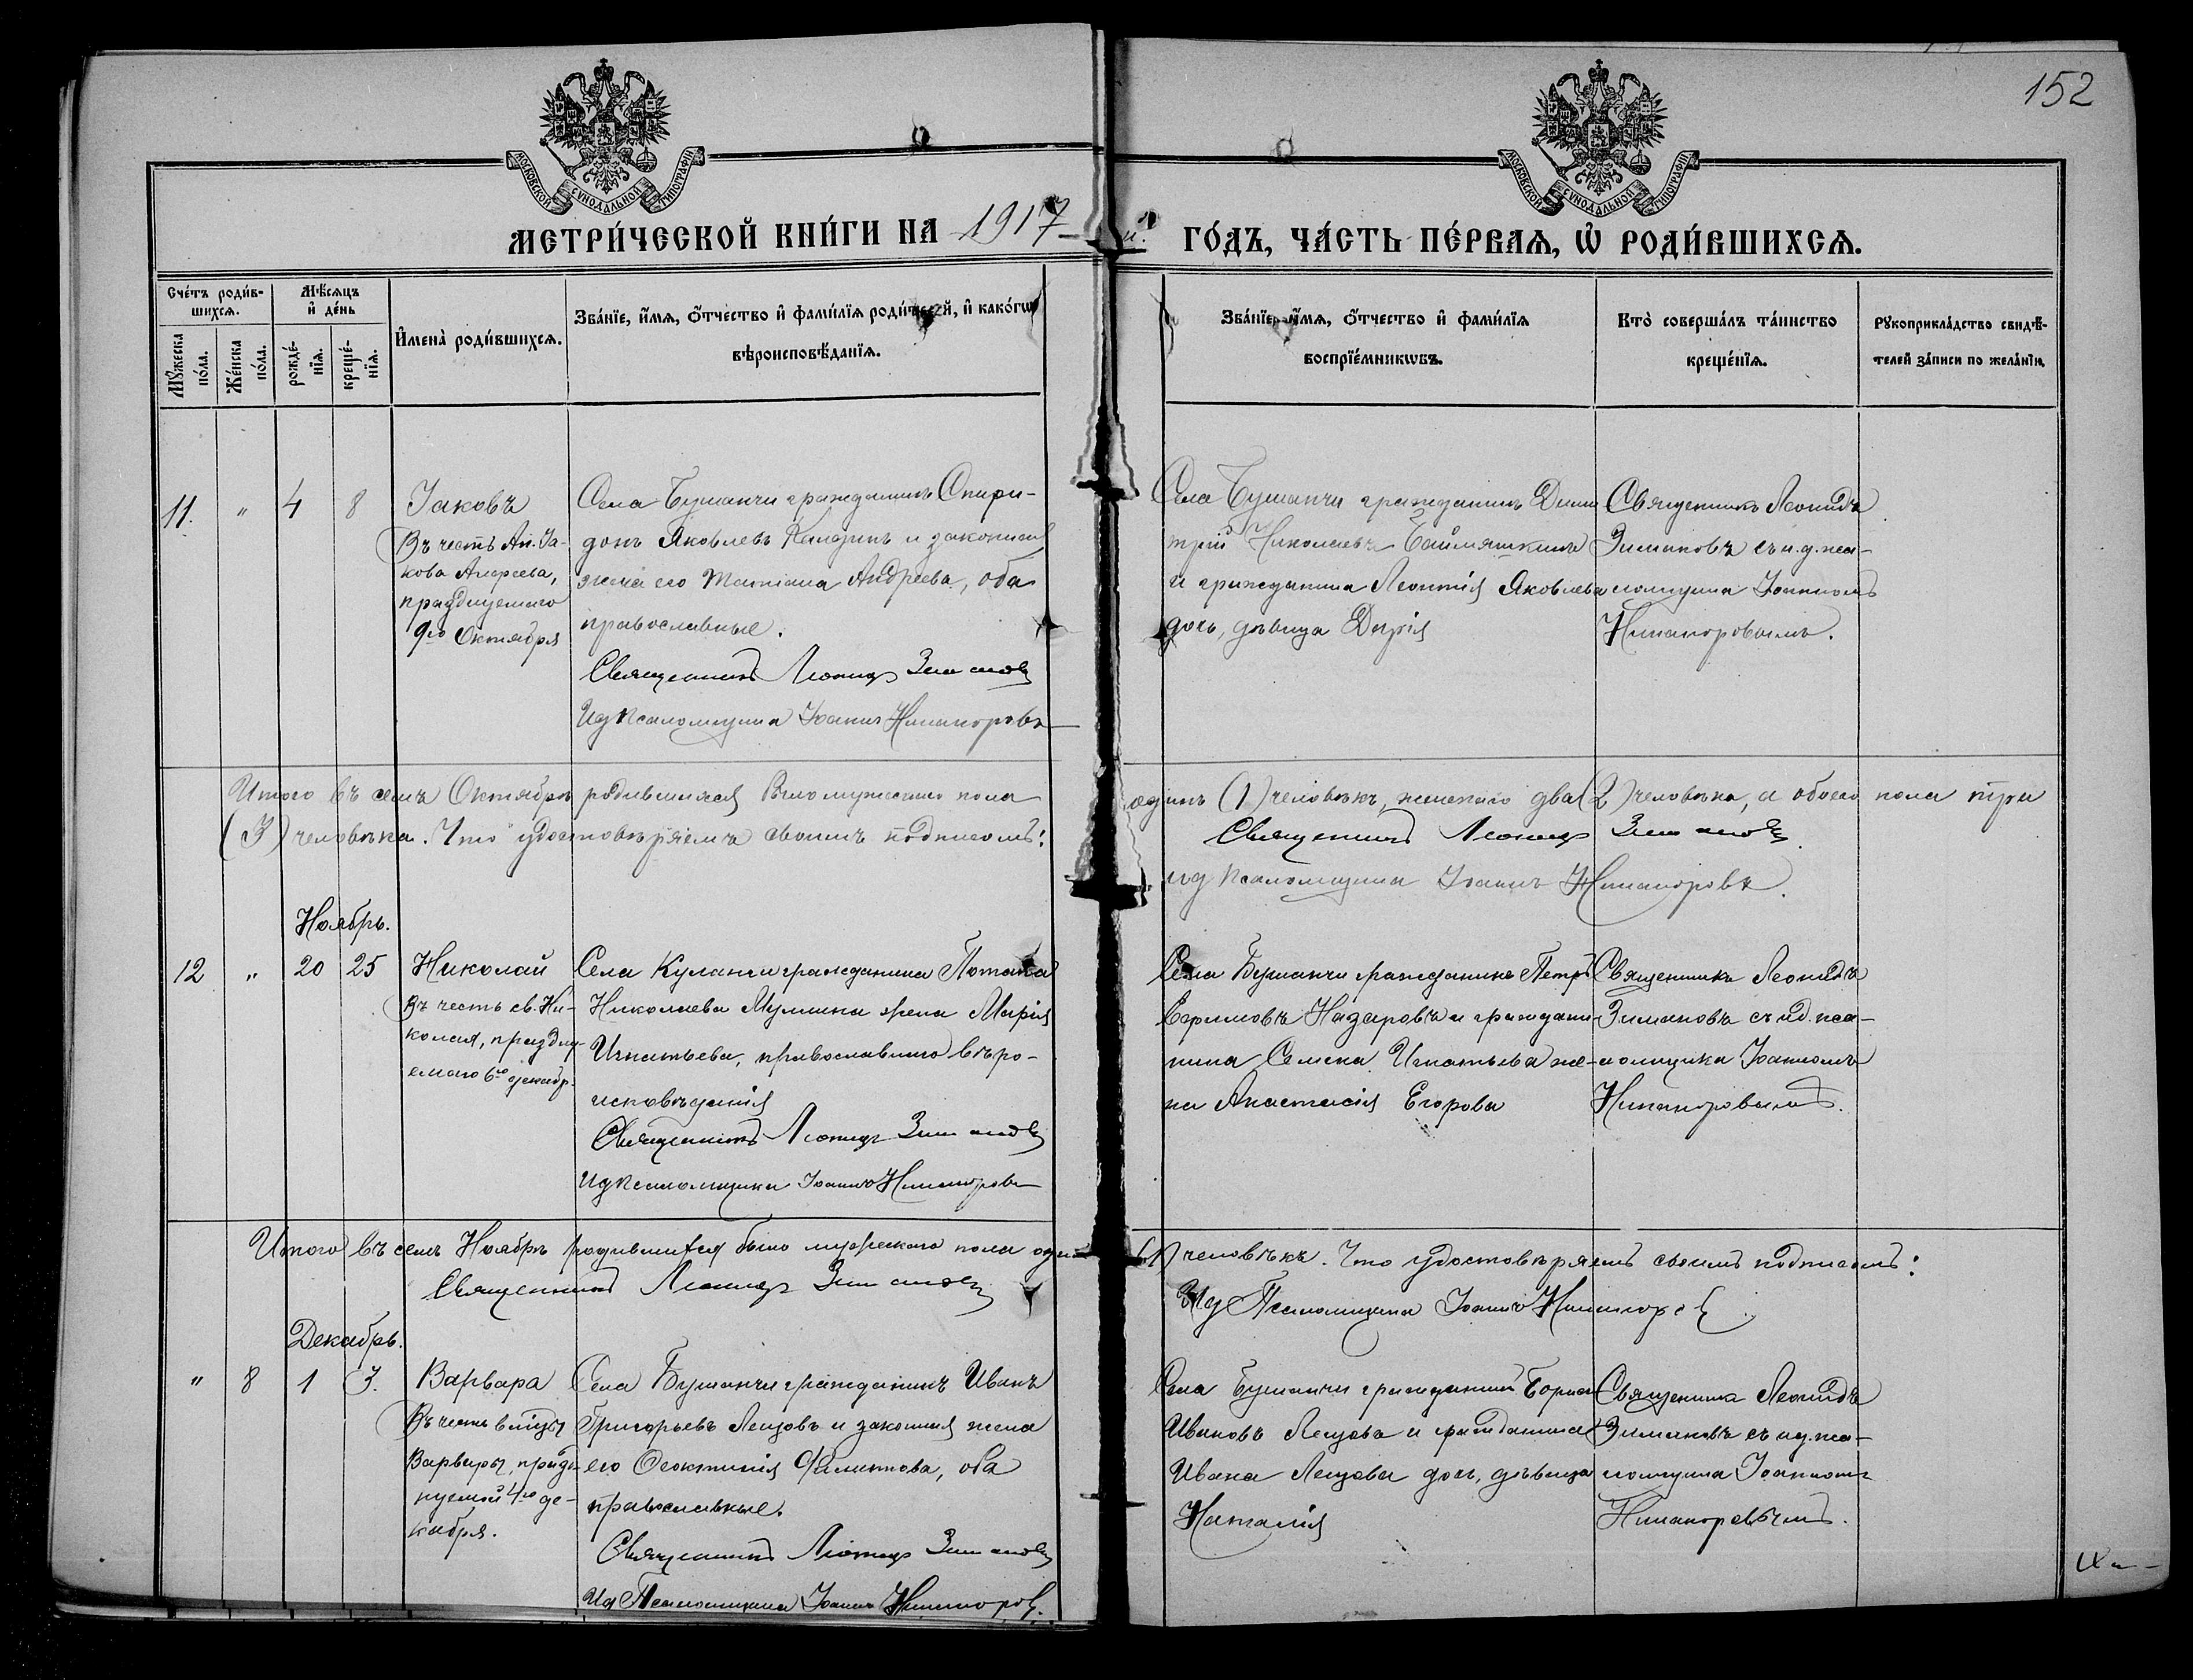 152
МОСКОВСКОЙ СѴНОДАЛЬНОЙ ТИПОГРАФІИ
МОСКОВСКОЙ СѴНОДАЛЬНОЙ ТИПОГРАФІИ
МЕТРИ́ЧЕСКОЙ КНИ́ГИ НА 1917 й. ГО́ДЪ, ЧА́СТЬ ПЕ́РВАЯ, Ѡ РОДИ́ВШИХСЯ.
Сче́тъ роди́в-
шихся.
Мѣ́сяцъ
и де́нь
Му́жеска
по́ла.
Же́нска
по́ла.
рожде́-
нїя.
креще́-
нїя.
Имена̀ роди́вшихся.
Зва́нїе, и́мя, о́тчество и фами́лїя роди́телей, и како́гѡ
вѣроисповѣ́данїя.
Зва́нїе, и́мя, о́тчество и фами́лїя
воспрїе́мникѡвъ.
Кто̀ соверша́лъ та́инство
креще́нїя.
Рукоприкла́дство свидѣ́-
телей за́писи по жела́нїю.
11. " 4 8 Іаковъ
Въ честь Ап. Іа-
кова Алфеева,
празднуемаго
9го Октября
Села Бушанчи гражданинъ Спири-
донъ Яковлевъ и законная
жена его Татіана Андреева, оба
православные.
Священникъ Леонидъ Зимановъ
Ид Псаломщика Іоаннъ Никаноровъ
Села Бушанчи гражданинъ Дими
трій Николаевъ Баймяшкинъ
и гражданина Леонтія Яковлева
дочь, дѣвица Дарія
Священникъ Леонидъ
Зимановъ съ и.д. пса-
ломщика Іоанномъ
Никаноровымъ.
Итого въ семъ Октябрѣ родившихся было мужескаго пола одинъ (1) человѣкъ, женскаго два (2) человѣка, а обоего пола три
(3) человѣка. Что удостовѣряемъ своимъ подписомъ:
Священникъ Леонидъ Зимановъ.
ид Псаломщика Іоаннъ Никаноровъ.
Ноябрь.
12 " 20 25 Николай
Въ честь св. Ни-
колая, праздну-
емаго 6го декабр.
Села Куланги гражданина Потапа
Николаева жена Марія
Игнатьева, православнаго вѣро-
исповѣданія
Священникъ Леонидъ Зимановъ
Ид Псаломщика Іоаннъ Никаноровъ
Села Бушанчи гражданинъ Петръ
Ефимовъ Назаровъ и граждани-
нина Семена Игнатьева же-
на Анастасія Егорова
Священникъ Леонидъ
Зимановъ съ ид. пса-
ломщика Іоанномъ
Никаноровымъ.
Итого въ семъ Ноябрѣ родившихся было мужескаго пола одинъ (1) человѣкъ. Что удостовѣряемъ своимъ подписомъ:
Священникъ Леонидъ Зимановъ
Ид Псаломщика Іоаннъ Никаноровъ.
Декабрь.
" 8 1 3. Варвара
Въ честь вмцы
Варвары, празд-
нуемой 4го де-
кабря.
Села Бушанчи гражданинъ Иванъ
Григорьевъ Лещовъ и законная жена
его Ѳеоктистія Филиппова, оба
православные.
Священникъ Леонидъ Зимановъ
Ид Псаломщика Іоаннъ Никаноровъ.
Села Бушанчи гражданинъ Борисъ
Ивановъ Лещовъ и гражданина
Ивана Лещова дочь, дѣвица
Наталія
Священникъ Леонидъ
Зимановъ съ ид. пса-
ломщика Іоанномъ
Никаноровымъ.